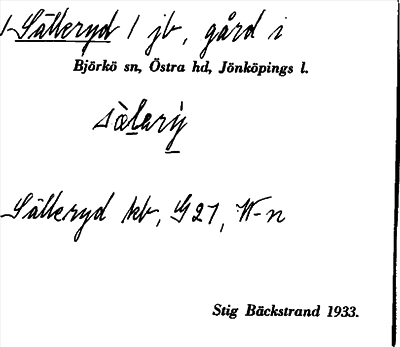 Sälleryd 1 jb, gård i
Björkö sn, Östra hd, Jönköpings l.
sàlarỳ
Sälleryd kb, G 27, W-n
Stig Bäckstrand 1933.